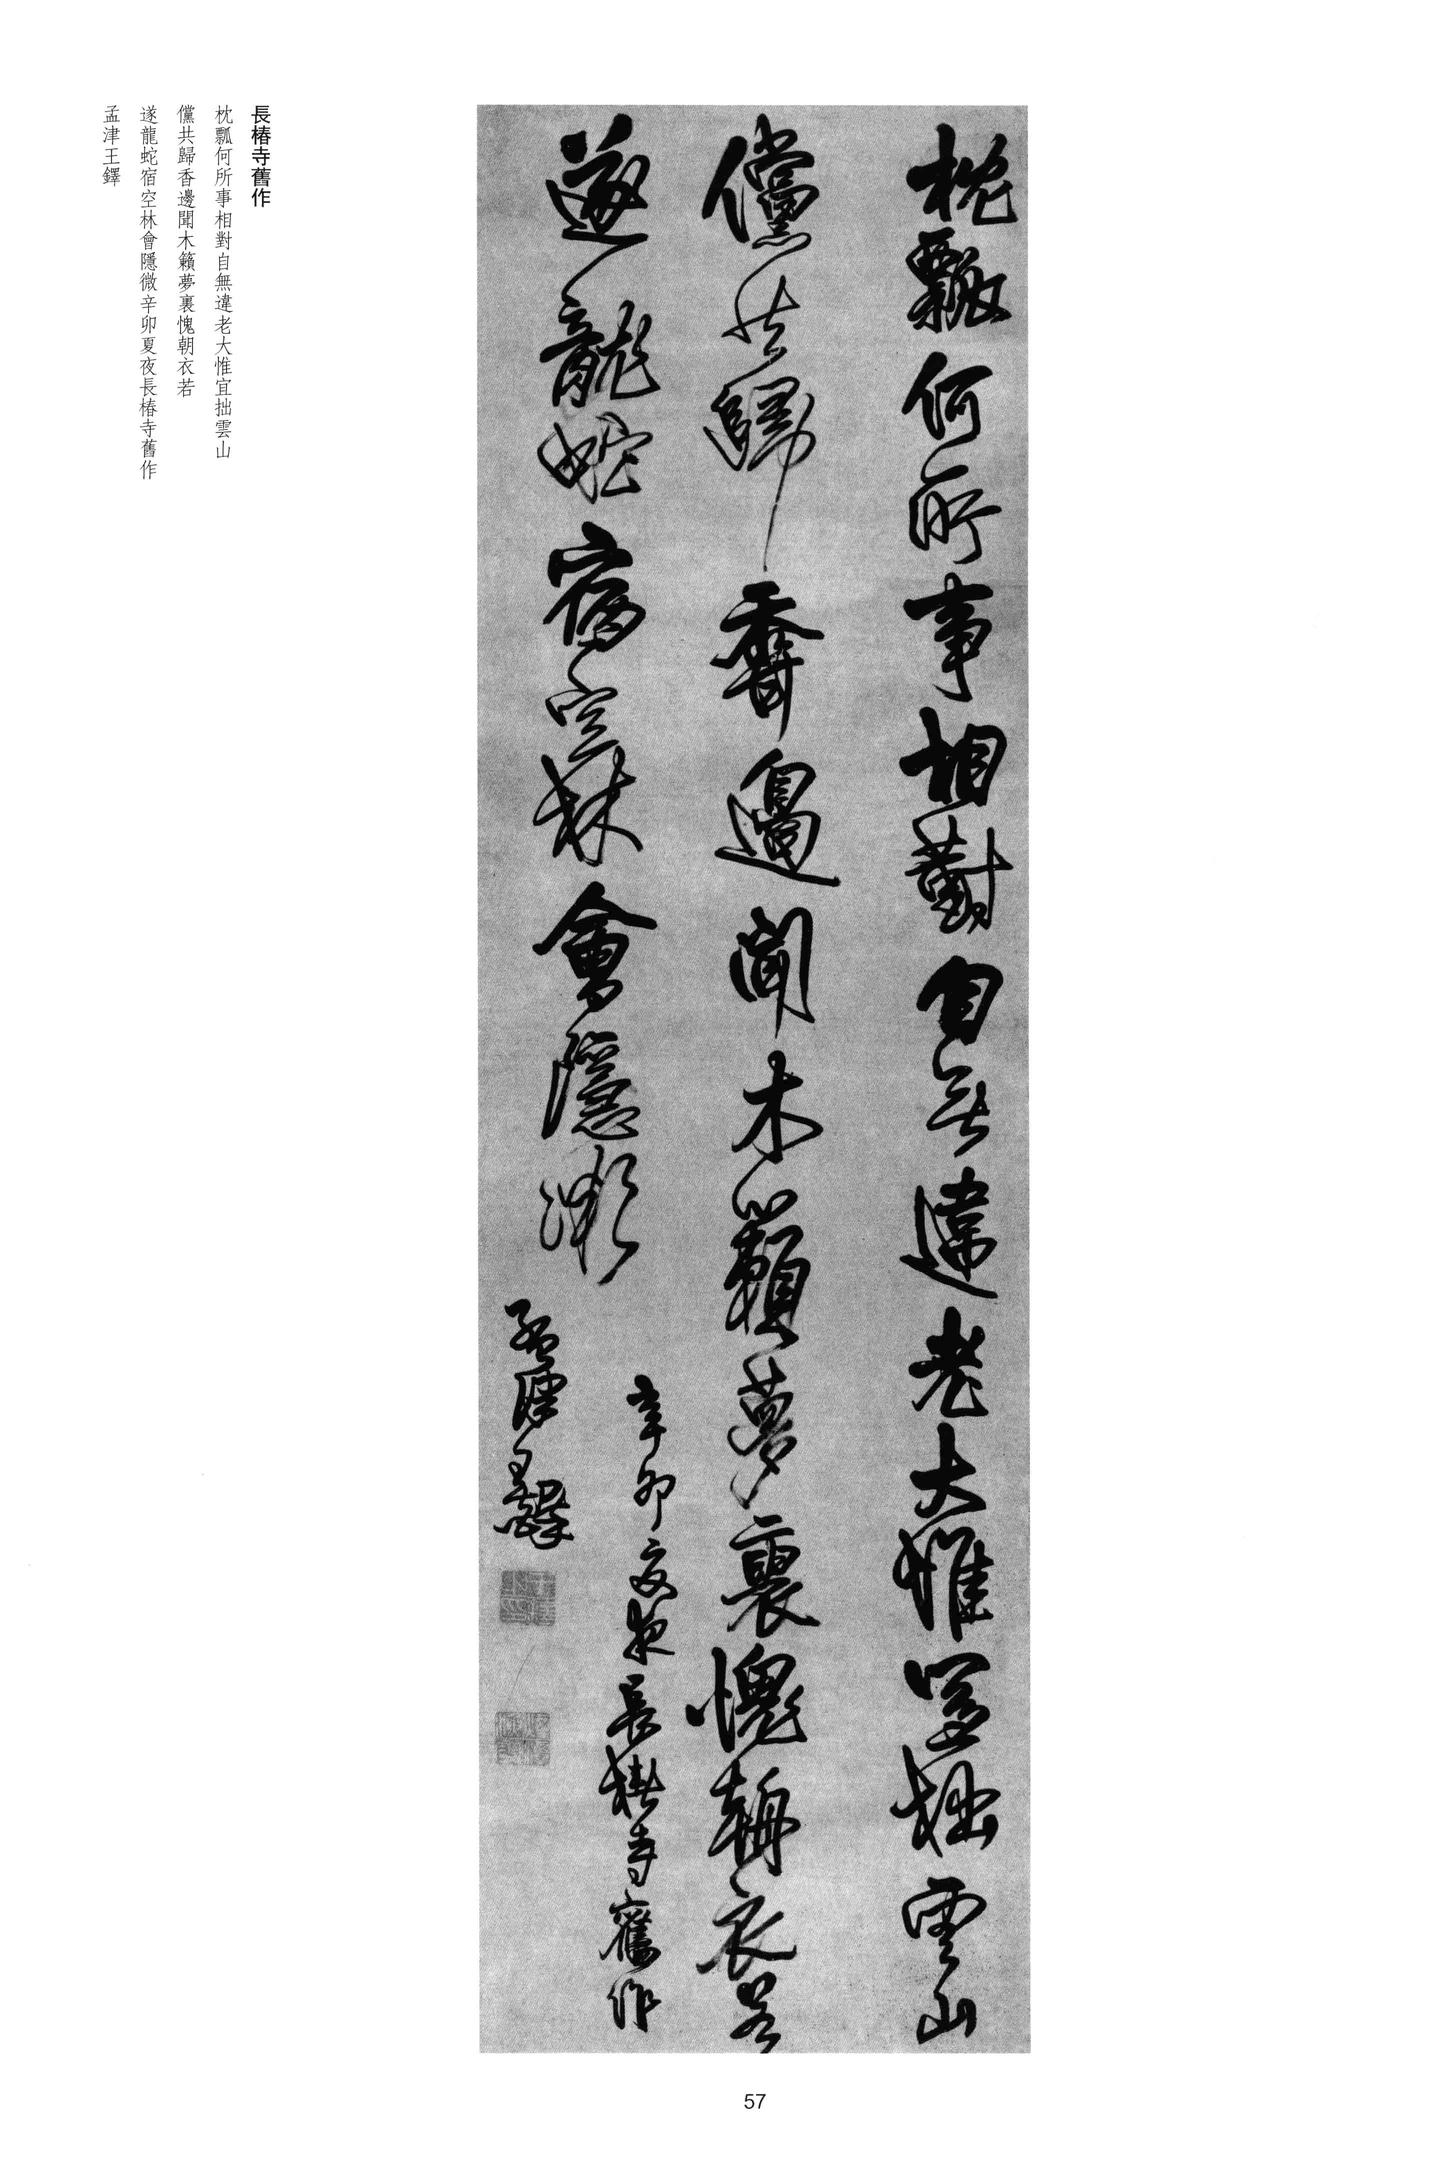 枕瓢何所事相對自無違老大惟宜拙雲山
儻共歸香邊聞木籟夢裏愧朝衣若
遂龍蛇宿空林會隱微
辛卯夏夜長椿寺舊作
孟津王鐸
長椿寺舊作
枕瓢何所事相對自無違老大惟宜拙雲山
儻共歸香邊聞木籟夢裏愧朝衣若
遂龍蛇宿空林會隱微辛卯夏夜長椿寺舊作
孟津王鐸
57